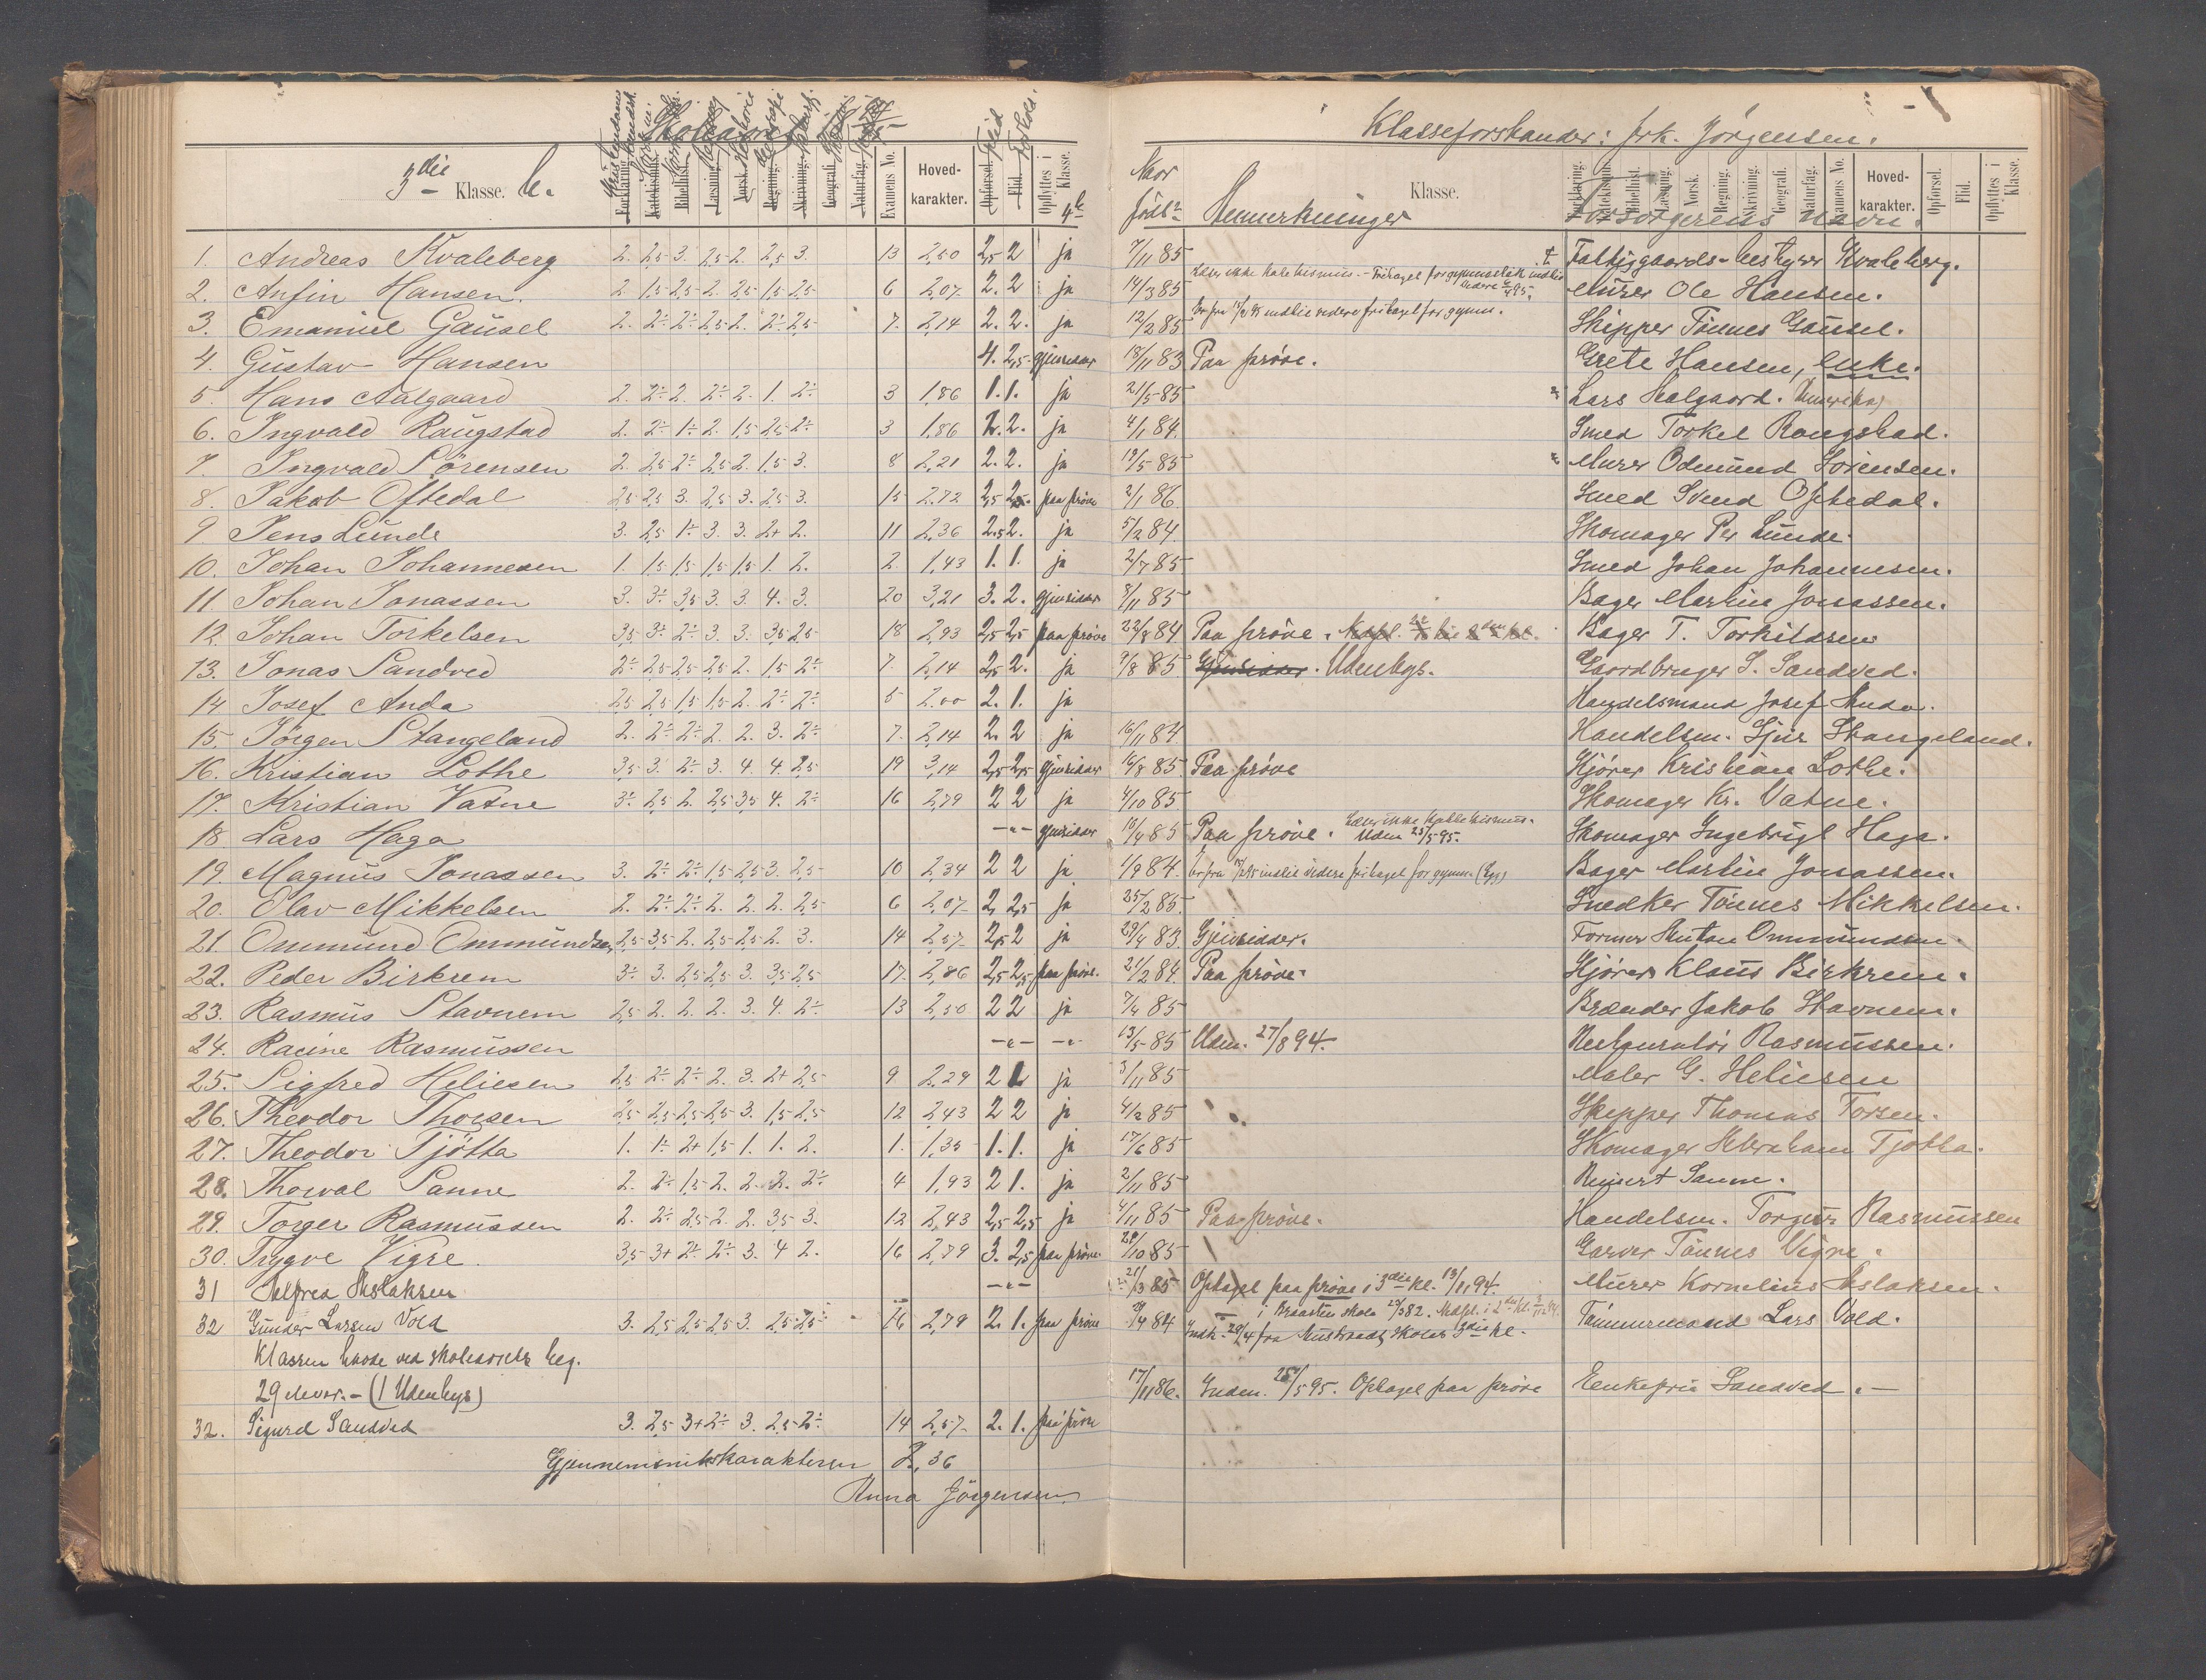 Skoleaaret 94-95
3die Klasse. b.
Kristendom Forklaring. Katekismus. Bibelhist. Læsning. Norsk. Historie Regning. Geografi Skrivning. Geografi. Naturfag. Examens No. Hoved-karakter. Opførsel. Flid. Flid Forhold. Opflyttes i Klasse. 4b
1. Andreas Kvaleberg 2. 2,5 3. 2,5 2. 2,5 3. 13 2,50 2,5 2 ja
2. Anfin Hansen. 2. 1,5 2,5 2. 2,5 1,5 2,5 6 2,07 2. 2 ja
3. Emanuel Gausel 2. 2÷ 2÷ 2,5 2. 2÷ 2,5 7. 2,14 2. 2. ja
4. Gustav Hansen 4. 2,5 gjensidder
5. Hans Aalgaard 2. 2÷ 2. 2÷ 2. 1. 2÷ 3 1,86 1. 1. ja
6. Ingvald Raugstad 2. 2÷ 1÷ 2. 1,5 2,5 2÷ 3 1,86 2. 2. ja
7. Ingvald Sörensen 2. 2,5 2÷ 2,5 2. 1,5 3. 8 2,21 2. 2. ja
8. Jakob Oftedal 2,5 2,5 3. 2,5 3. 2,5 3. 15 2,72 2,5 2,5 paa prøve
9 Jens Lunde 3. 2,5 1÷ 3. 3. 2+ 2. 11 2,36 2,5 2. ja
10. Johan Johannesen 1. 1,5 1,5 1,5 1,5 1. 2. 2. 1,43 1. 1. ja
11. Johan Jonassen 3. 3÷ 3,5 3. 3. 4. 3. 20 3,21 3. 2. gjensidder
12. Johan Torkelsen 3,5 3÷ 2÷ 3. 3. 3,5 2,5 18 2,93 2,5 2,5 paa prøve
13. Jonas Sandved 2÷ 2,5 2,5 2,5 2. 1,5 2÷ 7. 2,14 2,5 2. ja
14 Josef Anda 2,5 2,5 1,5 1,5 2. 2÷ 2÷ 5 2,00 2. 1. ja
15. Jörgen Stangeland 2. 2÷ 2÷ 2. 2. 3. 2÷ 7. 2,14 2. 2 ja
16. Kristian Lothe 3,5 3. 2÷ 3. 4. 4. 2,5 19 3,14 2,5 2,5 gjensidder
17. Kristian Vatne 3÷ 2,5 2. 2,5 3,5 4. 2÷ 16 2,79 2 2 ja
18 Lars Haga -"- gjensidder
19. Magnus Jonassen 3. 2÷ 2÷ 1,5 2,5 3. 2,5 10 2,34 2 2 ja
20. Olav Mikkelsen 2. 2÷ 2÷ 2. 2. 2. 2,5 6 2,07 2, 2,5 ja
21. Ommund Ommundsen 2,5 3,5 2. 2,5 2,5 2. 3. 14 2,57 2,5 2 ja
22. Peder Birkrem 3÷ 3. 2,5 2,5 3. 3,5 2,5 17. 2,86 2,5 2,5 paa prøve.
23. Rasmus Stavnem 2,5 2. 2. 2. 3. 4. 2÷ 13 2,50 2 2 ja
24. Racine Rasmussen -"- -"-
25. Sigfred Heliesen 2,5 2÷ 2÷ 2. 3. 2+ 2,5 9 2,29 2 1 ja
26. Theodor Thorsen 2,5 2,5 2,5 2,5 3. 1,5 2,5 12 2,43 2 2 ja
27. Theodor Tjötta 1. 1÷ 2+ 1,5 1. 1. 2. 1. 1,35 1. 1. ja
28. Thorval Sanne 2. 2÷ 1,5 2. 2. 2. 2÷ 4 1,93 2 1. ja
29. Torger Rasmussen 2. 2÷ 2,5 2. 2. 3,5 3. 12 2,43 2,5 2,5 ja
30. Trygve Vigre. 3,5 3+ 2÷ 2÷ 3. 4 2. 16 2,79 3. 2,5 paa prøve
31 Alfred Aslaksen -"-
32 Gunder Larsen Vold 3. 2,5 2,5 2,5 3. 2,5 2,5 16 2,79 2. 1. paa prøve
Klassen havde ved skoleaarets beg.
29 elever. - (1 Udenbys)
32. Sigurd Sandved 3. 2,5 3+ 2÷ 3. 2,5 2÷ 14 2,57 2. 1. paa prøve
Gjennemsnitskarakteren 2,36
Anna Jörgensen
Klasseforstander: frk. Jørgensen.
Naar födt Bemerkninger Klasse. Forklaring. Katekismus. Bibelhist. Læsning. Norsk. Regning. Skrivning. Geografi. Naturfag. Examens No. Hoved-karakter. Opførsel. Flid. Opflyttes i Klasse.
Forsørgerens navn.
7/11 85 Fattiggaards-bestyrer Kvaleberg.
14/3 85 Læser ikke katekismus. - Fritaget for gymnastik indtil videre Murer Ole Hansen.
12/2 85 indtil videre fritaget for gymn. Skipper Tönnes Gausel.
18/11 83 Paa prøve. Grete Hansen, enke.
21/5 85 Lars Aalgaard. (Amerika)
4/1 84. Smed Torkel Raugstad.
19/5 85 Murer Odmund Sörensen.
2/1 86 Smed Svend Oftedal.
5/2 84 Skomager Per Lunde.
2/7 85 Smed Johan Johannesen.
8/11 85 Bager Martin Jonassen.
22/8 84 Paa prøve. Bager T. Torkildsen
9/8 85 Gjensidder. Udenbys. Gaardbruger S. Sandved.
Handelsmand Josef Anda.
16/11 84 Handelsm. Sjur Stangeland.
16/8 85 Paa prøve Kjører Kristian Lothe.
4/10 85 Skomager Kr. Vatne.
10/4 85 Paa prøve. Læser ikke Kattekismus. Udm. 25/5 95. Skomager Ingebrigt Haga.
1/9 84. indtil videre fritaget for gymn. Bager Martin Jonassen.
25/2 85. Snedker Tönnes Mikkelsen.
29/4 83. Gjensidder. Former Anton Ommundsen.
21/2 84. Paa prøve. Kjører Klaus Birkrem.
7/4 85 Brænder Jakob Stavnem.
13/5 85 Udm. 27/8 94. Restauratör Rasmussen.
3/11 85 Maler G. Heliesen
4/2 85 Skipper Thomas Torsen.
17/6 85 Skomager Abraham Tjötta.
2/11 85 Reinert Sanne.
4/11 85 Paa prøve. Handelsm. Torger Rasmussen
29/10 85 Garver Tönnes Vigre.
21/3 85 Optaget paa prøve i 3die kl. 13/11 94. Murer Kornelius Aslaksen.
84 Indk. 29/4 fra Austraadt skoles 3die kl. Tömmermand Lars Vold.
17/11 86. Indm. 25/5 95. Optaget paa prøve Enkefru Sandved. -